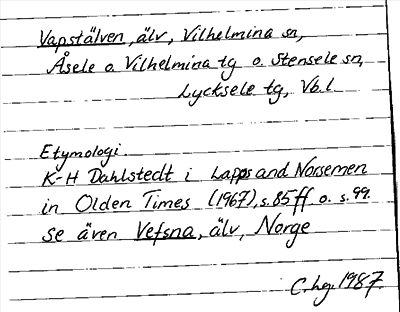 Vapstälven, älv, Vilhelmina sn,
Åsele o. Vilhelmina tg o. Stensele sn,
Lycksele tg, Vb.l.
Etymologi.
K-H Dahlstedt i Lapps and Norsemen
in Olden Times (1967), s. 85 ff o. s. 99.
se även Vefsna, älv, Norge
C.hg. 1987.